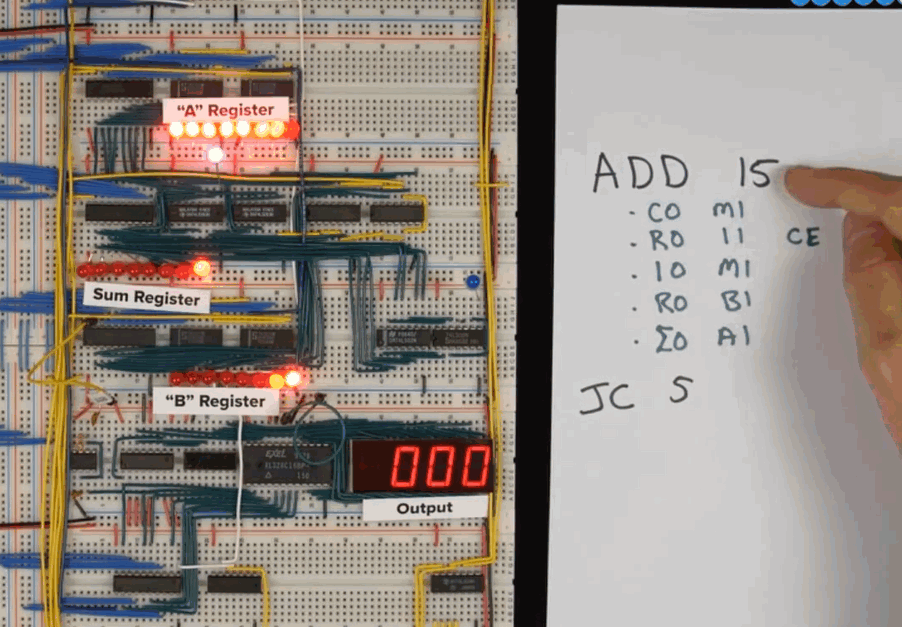 "A" Register
Sum Register
"B" Register
EXEL
000
Output
ADD 15
· CO MI
· RO II CE
· IO MI
· RO BI
· ΣO AI
JC 5